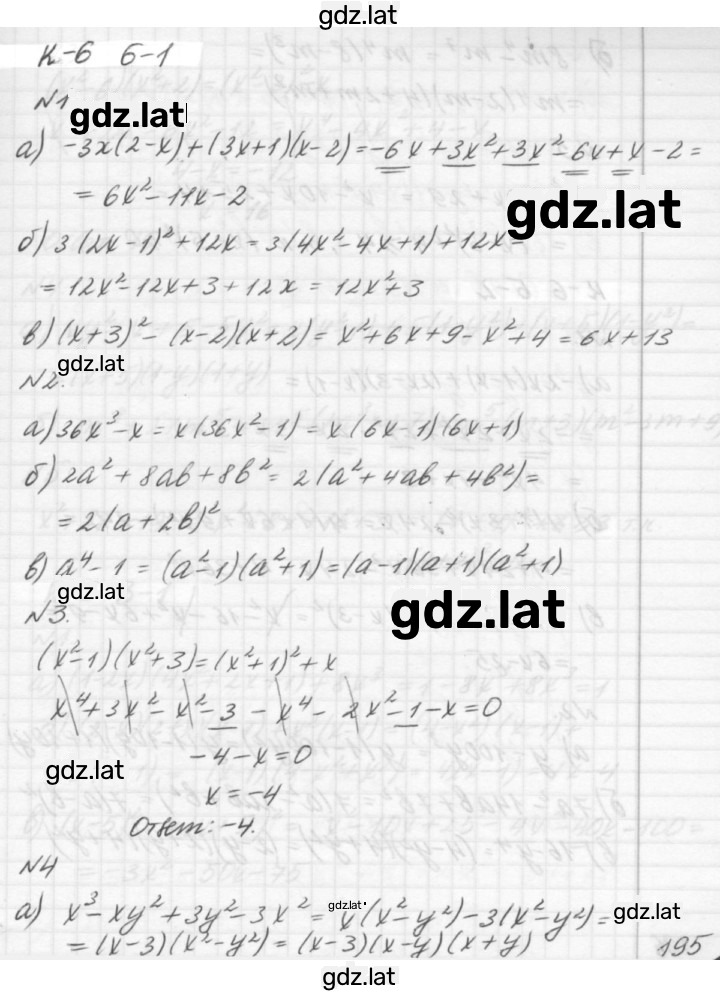 gdz.lat
К-6 6-1
№1
gdz.lat
а) -3x(2-x)+(3x+1)(x-2)=-6x+3x²+3x²-6x+x-2=
=6x²-11x-2
gdz.lat
б) 3(2x-1)²+12x=3(4x²-4x+1)+12x=
=12x²-12x+3+12x=12x²+3
в) (x+3)²-(x-2)(x+2)=x²+6x+9-x²+4=6x+13
gdz.lat
№2.
а) 36x³-x=x(36x²-1)=x(6x-1)(6x+1)
б) 2a²+8ab+8b²=2(a²+4ab+4b²)=
=2(a+2b)²
в) a⁴-1=(a²-1)(a²+1)=(a-1)(a+1)(a²+1)
gdz.lat
gdz.lat
№3.
(x²-1)(x²+3)=(x²+1)²+x
x⁴+3x²-x²-3-x⁴-2x²-1-x=0
-4-x=0
gdz.lat
x=-4
Ответ: -4.
№4
gdz.lat
а) x³-xy²+3y²-3x²=x(x²-y²)-3(x²-y²)=
gdz.lat
=(x-3)(x²-y²)=(x-3)(x-y)(x+y)
195
gdz.lat